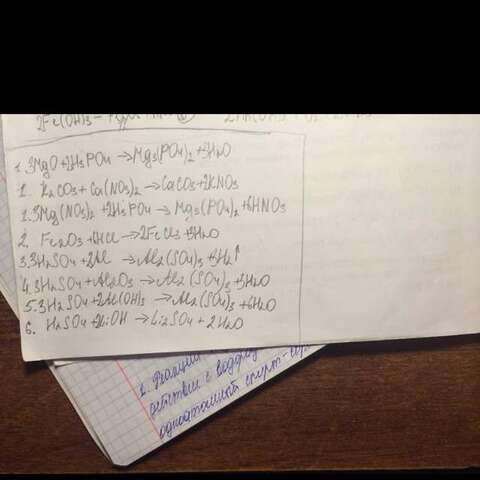 2Fe(OH)3
1. 3MgO+2H3PO4→Mg3(PO4)2+3H2O
1. K2CO3+Ca(NO3)2→CaCO3+2KNO3
1. 3Mg(NO3)2+2H3PO4→Mg3(PO4)2+6HNO3
2. Fe2O3+6HCl→2FeCl3+3H2O
3. 3H2SO4+2Al→Al2(SO4)3+3H2↑
4. 3H2SO4+Al2O3→Al2(SO4)3+3H2O
5. 3H2SO4+2Al(OH)3→Al2(SO4)3+6H2O
6. H2SO4+2LiOH→Li2SO4+2H2O
2. Реакции
действие с водород
одноатомный спирт